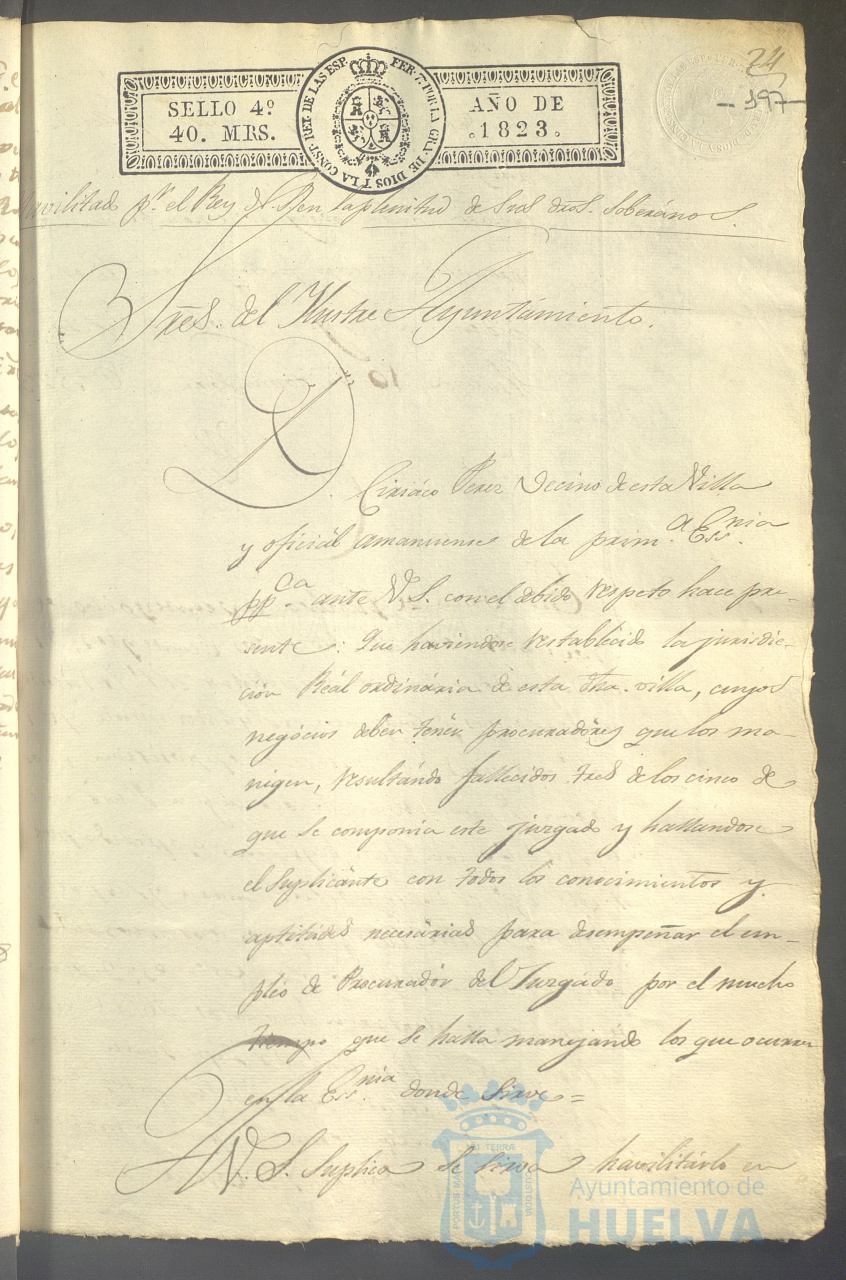 24
-197-
SELLO 4º
40. MRS.
FER. 7. POR LA GRA. DE DIOS Y LA CONST. REY DE LAS ESP.
AÑO DE
1823.
Havilitado pr. el Rey N. S. en la plenitud de sus dros. soberános.
Sres. del Ilustre Ayuntámiento.
D. Ciriáco Perez Vecino de esta Villa
y oficiál amanuense de la prim.ª Ess.nia
pp.ca ante V. S. con el debido respeto hace pre-
sente: Que haviendose restablecido la jurisdic-
ción Reál ordinária de esta dha. villa, cuyos
negócios deben tenér procuradóres que los ma-
nigen, resultándo fallecidos tres de los cinco de
que se componia este juzgado y hallandose
el suplicánte con todos los conocimientos y
aptitúdes necesárias para desempeñar el em-
pléo de Procuradór del Juzgádo por el mucho
tiempo que se halla manejándo los que ocurren
en la Ess.nia donde sirve =
A V. S. Suplica se sirva havilitárlo en
PORTUS MARIS
ET TERRÆ
CUSTODIA
Ayuntamiento de
HUELVA